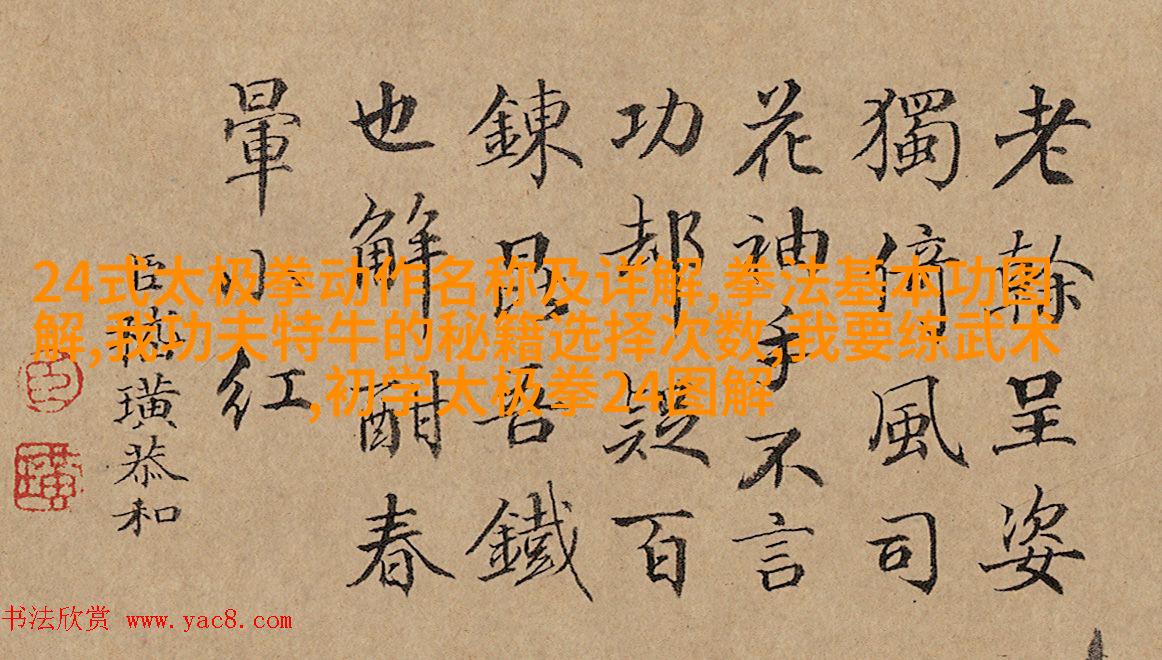 老榦呈姿
獨倚風司
花神手不言
功却疑百
鍊昆吾鐵
也解酣春
暈小紅
臣璜恭和
臣
璜
24式太极拳动作名称及详解,拳法基本功图
解,我功夫特牛的秘籍选择次数,我要练武术
,初学太极拳24图解
书法欣赏 www.yac8.com